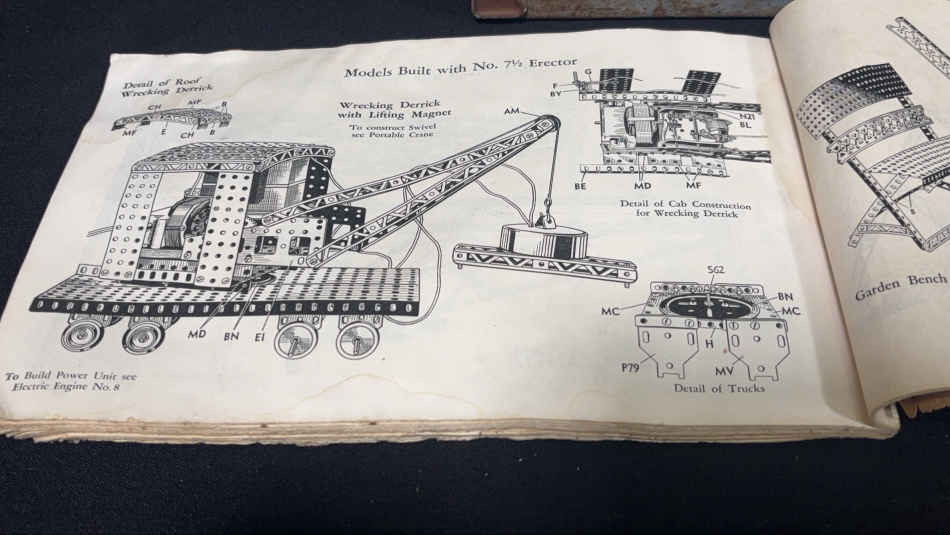 Models Built with No. 7½ Erector
Detail of Roof
Wrecking Derrick
CH
MF
B
MF
E
CH
B
Wrecking Derrick
with Lifting Magnet
To construct Swivel
see Portable Crane
AM
MD
BN
EI
To Build Power Unit see
Electric Engine No. 8
G
F
BY
N21
BL
BE
MD
MF
Detail of Cab Construction
for Wrecking Derrick
SG2
MC
BN
MC
H
P79
MV
Detail of Trucks
Garden Bench